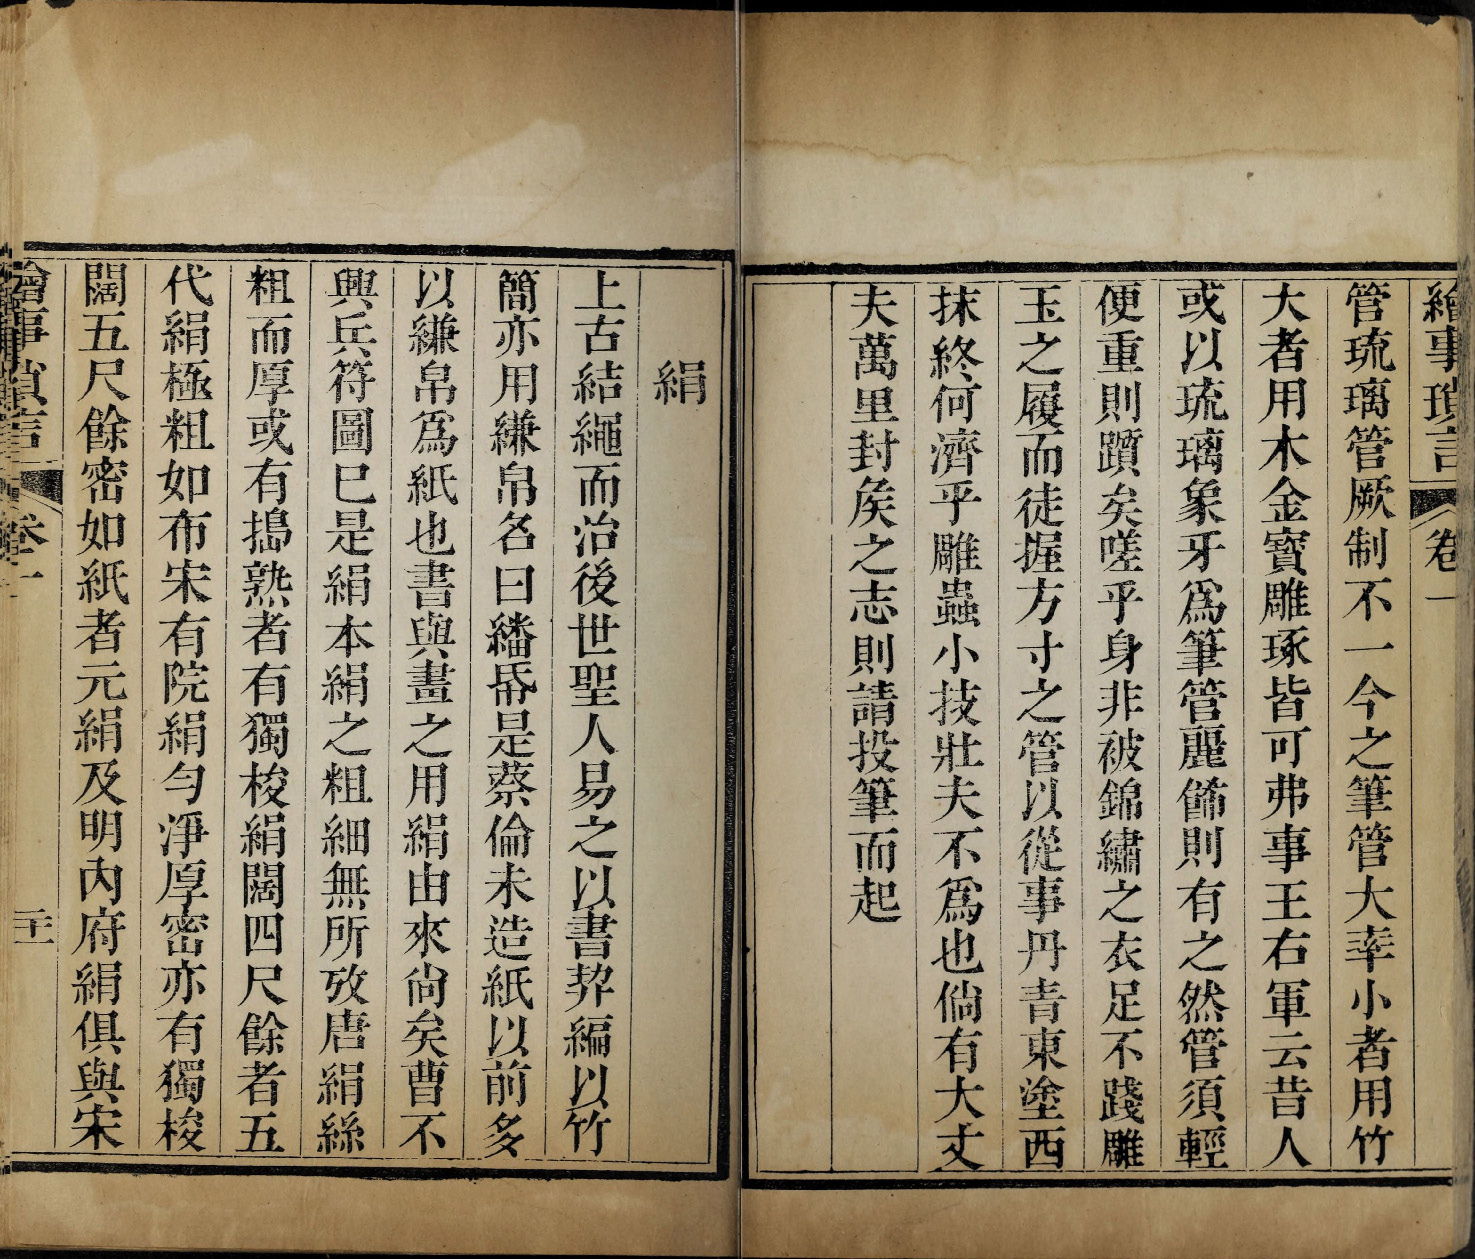 繪事瑣言 卷一
管琉璃管厥制不一今之筆管大率小者用竹
大者用木金寳雕琢皆可弗事王右軍云昔人
或以琉璃象牙爲筆管麗餙則有之然管須輕
便重則躓矣嗟乎身非被錦繡之衣足不踐雕
玉之履而徒握方寸之管以從事丹青東塗西
抹終何濟乎雕蟲小技壯夫不爲也倘有大丈
夫萬里封矦之志則請投筆而起
絹
上古結繩而治後世聖人易之以書契編以竹
簡亦用縑帛名曰繙帋是蔡倫未造紙以前多
以縑帛爲紙也書與畫之用絹由來尚矣曹不
興兵符圖已是絹本絹之粗細無所攷唐絹絲
粗而厚或有搗熟者有獨梭絹闊四尺餘者五
代絹極粗如布宋有院絹勻凈厚密亦有獨梭
闊五尺餘密如紙者元絹及明內府絹俱與宋
繪事瑣言 卷一 二十一